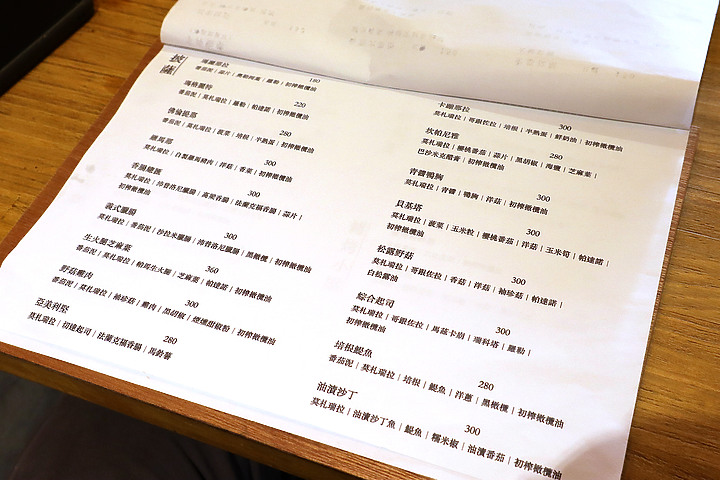 披薩
瑪麗那拉 180
番茄泥 | 蒜片 | 奧勒岡葉 | 羅勒 | 初榨橄欖油
瑪格麗特 220
番茄泥 | 莫札瑞拉 | 羅勒 | 帕達諾 | 初榨橄欖油
佛倫緹耶 280
番茄泥 | 莫札瑞拉 | 菠菜 | 培根 | 半熟蛋 | 初榨橄欖油
羅馬那 300
莫札瑞拉 | 自製羅馬豬肉 | 洋菇 | 香菜 | 初榨橄欖油
香腸總匯 300
莫札瑞拉 | 沛普洛尼臘腸 | 高粱香腸 | 法蘭克福香腸 | 蒜片 |
初榨橄欖油
義式臘腸 300
番茄泥 | 莫札瑞拉 | 沙拉米臘腸 | 沛普洛尼臘腸 | 黑橄欖 | 初榨橄欖油
生火腿芝麻葉 360
番茄泥 | 莫札瑞拉 | 帕馬生火腿 | 芝麻葉 | 帕達諾 | 初榨橄欖油
野菇雞肉 300
番茄泥 | 莫札瑞拉 | 袖珍菇 | 雞肉 | 黑胡椒 | 煙燻甜椒粉 | 初榨橄欖油
亞美利堅 280
莫札瑞拉 | 切達起司 | 法蘭克福香腸 | 馬鈴薯
卡爾那拉 300
莫札瑞拉 | 哥跟佐拉 | 培根 | 半熟蛋 | 鮮奶油 | 初榨橄欖油
坎帕尼雅 280
莫札瑞拉 | 櫻桃番茄 | 蒜片 | 黑胡椒 | 海鹽 | 芝麻葉 |
巴沙米克醋膏 | 初榨橄欖油
青醬鴨胸 300
莫札瑞拉 | 青醬 | 鴨胸 | 洋菇 | 初榨橄欖油
貝基塔 300
莫札瑞拉 | 菠菜 | 玉米粒 | 櫻桃番茄 | 洋菇 | 玉米筍 | 帕達諾 |
初榨橄欖油
松露野菇 300
莫札瑞拉 | 哥跟佐拉 | 香菇 | 洋菇 | 袖珍菇 | 帕達諾 |
白松露油
綜合起司 300
莫札瑞拉 | 哥跟佐拉 | 馬茲卡朋 | 瑞科塔 | 羅勒 |
初榨橄欖油
培根鯷魚 280
番茄泥 | 莫札瑞拉 | 培根 | 鯷魚 | 洋蔥 | 黑橄欖 | 初榨橄欖油
油漬沙丁 300
莫札瑞拉 | 油漬沙丁魚 | 鯷魚 | 糯米椒 | 油漬番茄 | 初榨橄欖油